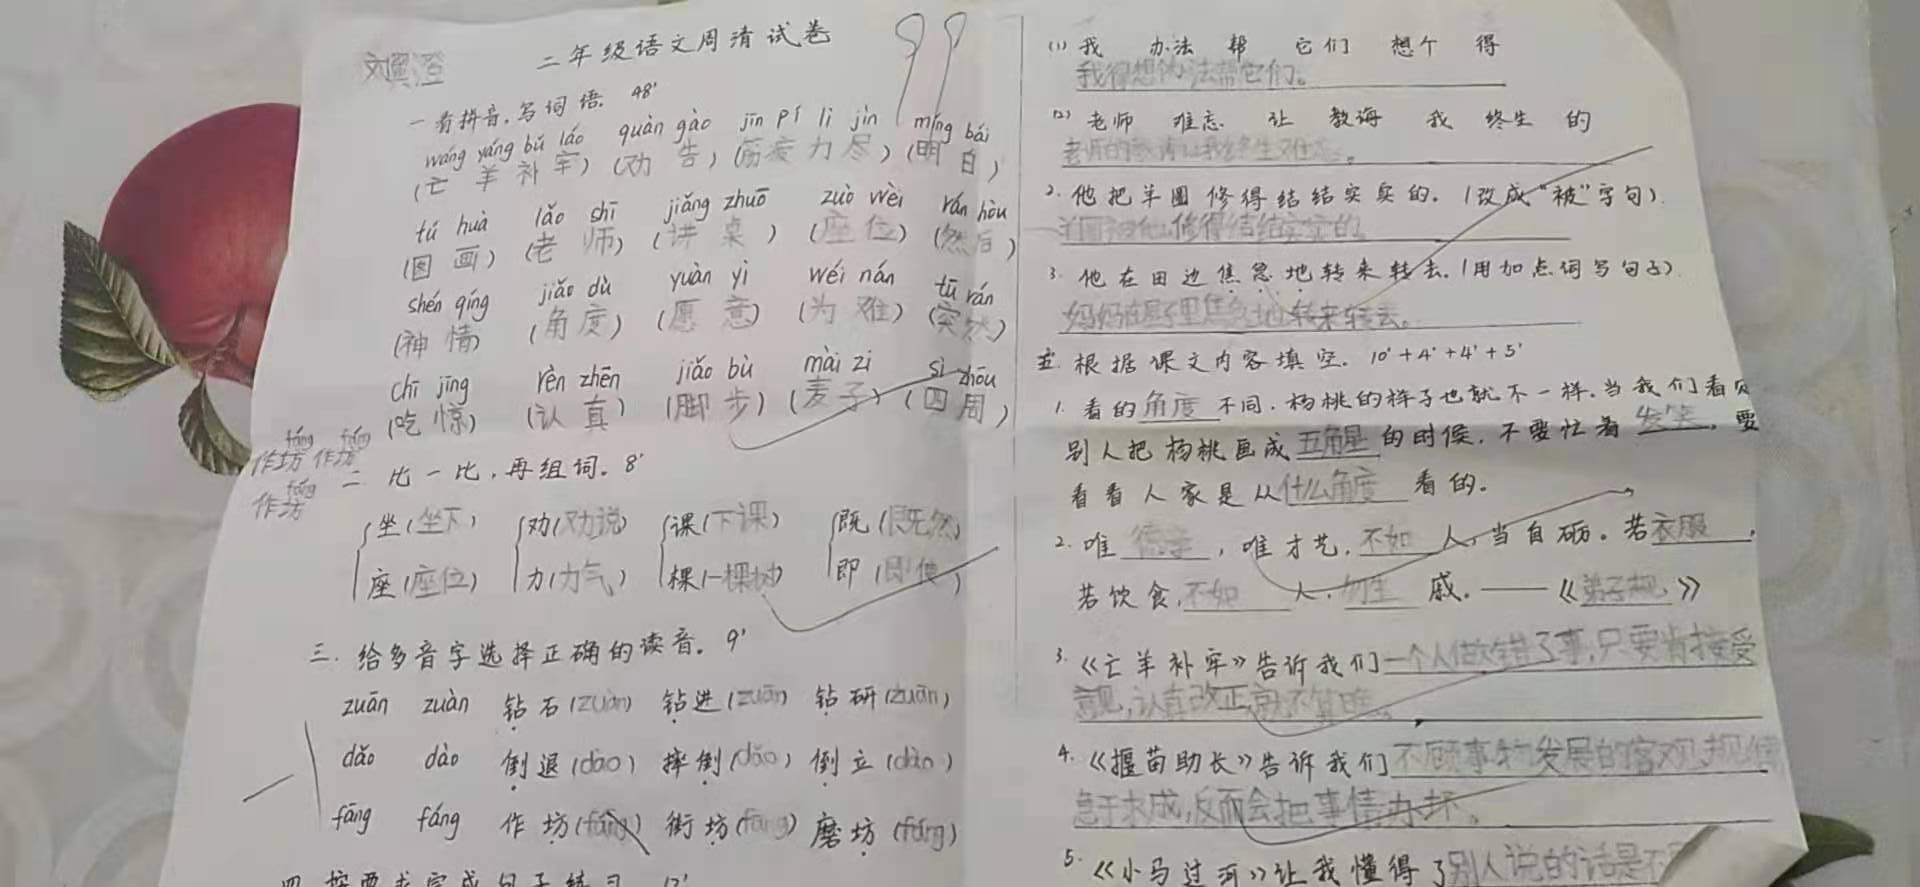 刘奕澄
二年级语文周清试卷
99
一 看拼音，写词语。48'
wáng yáng bǔ láo quàn gào jīn pí lì jìn míng bái
(亡羊补牢) (劝告) (筋疲力尽) (明白)
tú huà lǎo shī jiǎng zhuō zuò wèi rán hòu
(图画) (老师) (讲桌) (座位) (然后)
shén qíng jiǎo dù yuàn yì wéi nán tū rán
(神情) (角度) (愿意) (为难) (突然)
chī jīng rèn zhēn jiǎo bù mài zi sì zhōu
(吃惊) (认真) (脚步) (麦子) (四周)
fáng fáng
作坊 作坊
fáng
作坊
二 比一比，再组词。8'
坐(坐下) 劝(劝说) 课(下课) 既(既然)
座(座位) 力(力气) 棵(一棵树) 即(即使)
三. 给多音字选择正确的读音。9'
zuān zuàn 钻石(zuàn) 钻进(zuān) 钻研(zuān)
dǎo dào 倒退(dào) 摔倒(dǎo) 倒立(dào)
fāng fáng 作坊(fāng) 街坊(fāng) 磨坊(fáng)
四 按要求完成句子练习 12'
(1) 我 办法 帮 它们 想个 得
我得想个办法帮它们。
(2) 老师 难忘 让 教诲 我 终生 的
老师的教诲让我终生难忘。
2. 他把羊圈修得结结实实的。(改成“被”字句).
羊圈被他修得结结实实的。
3. 他在田边焦急地转来转去。(用加点词写句子).
妈妈在屋子里焦急地转来转去。
五. 根据课文内容填空. 10'+4'+4'+5'
1. 看的角度不同. 杨桃的样子也就不一样. 当我们看见
别人把杨桃画成五角星的时候. 不要忙着发笑, 要
看看人家是从什么角度看的。
2. 唯德学, 唯才艺, 不如人, 当自砺。若衣服,
若饮食, 不如人, 勿生戚. ——《弟子规》
3. 《亡羊补牢》告诉我们一个人做错了事,只要肯接受
意见,认真改正,就不算晚。
4. 《揠苗助长》告诉我们不顾事物发展的客观规律
急于求成,反而会把事情办坏。
5. 《小马过河》让我懂得了别人说的话是不